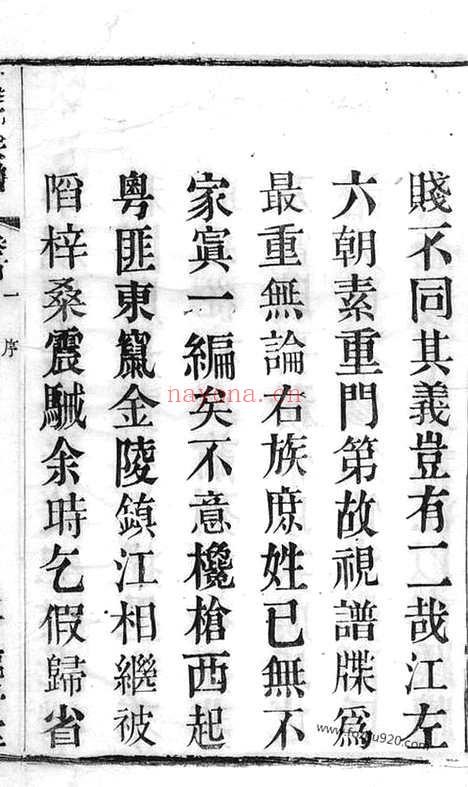 賤不同其義豈有二哉江左
六朝素重門第故視譜牒爲
最重無論右族庶姓已無不
家寘一編矣不意欃槍西起
粵匪東竄金陵鎮江相繼被
陷梓桑震駴余時乞假歸省
序
nayona.com
www.foyou920.com